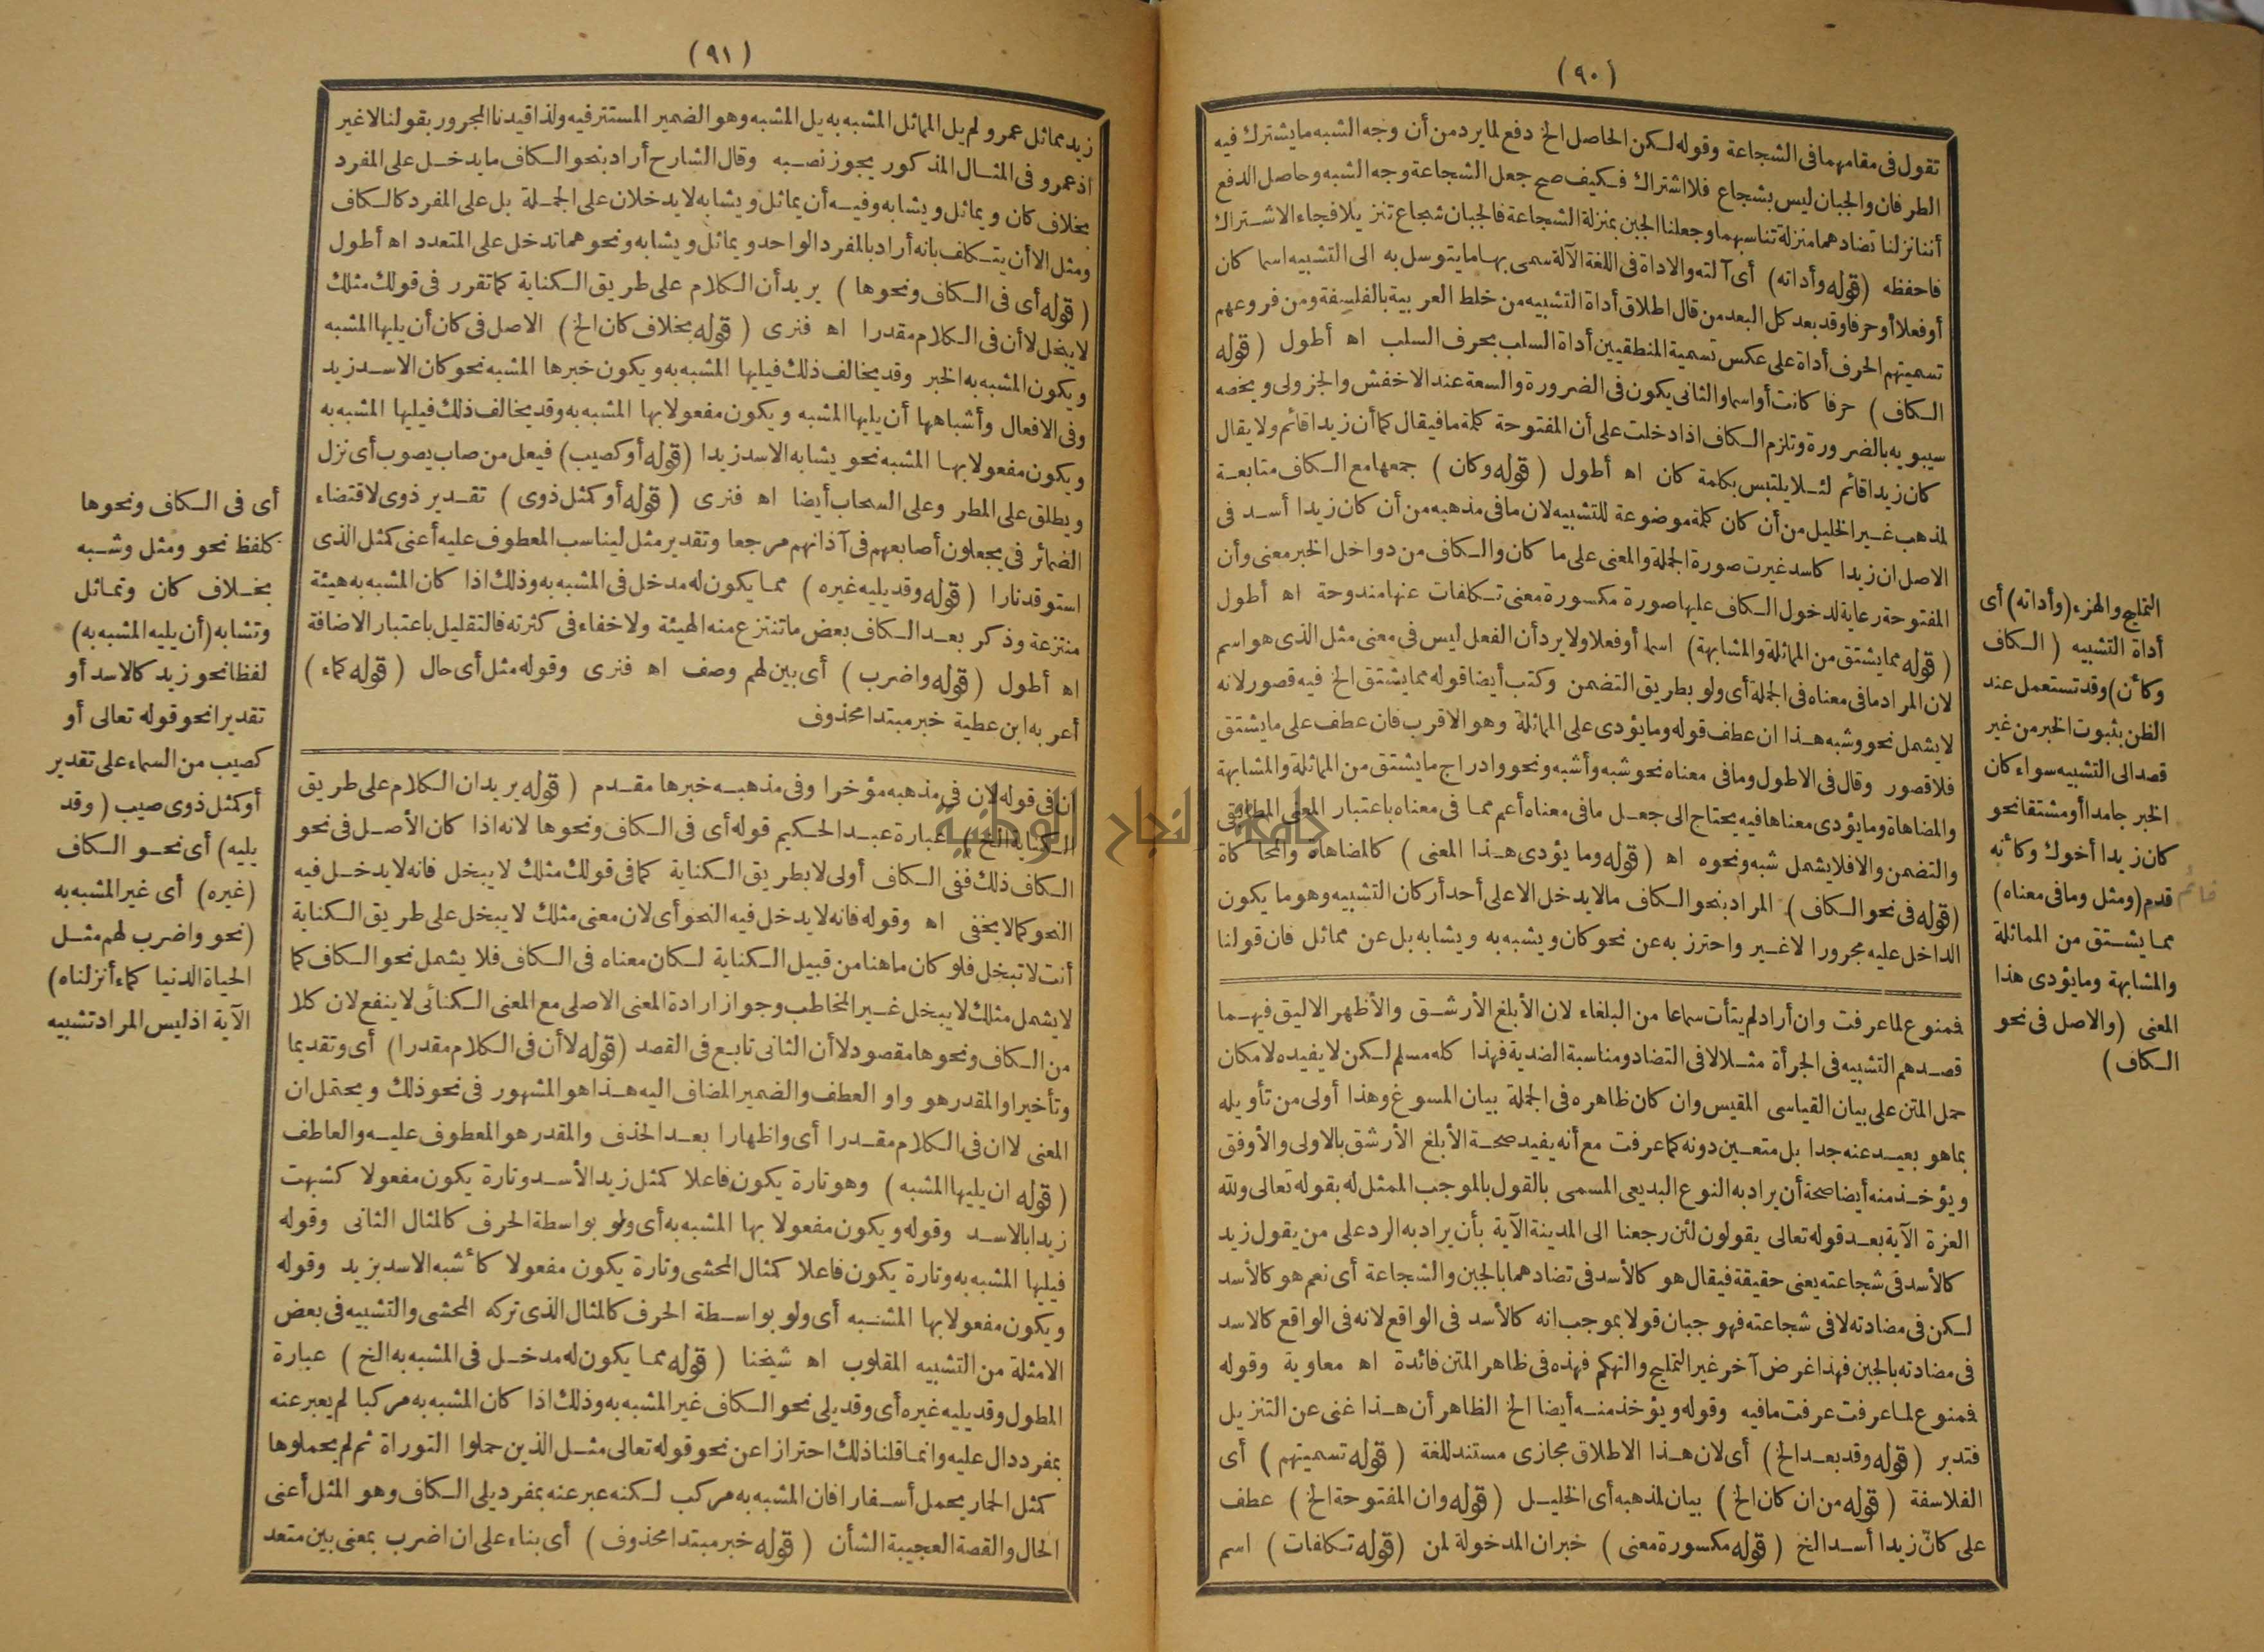 (٩٠)
تقول فى مقامهما فى الشجاعة وقوله لكن الحاصل الخ دفع لما يرد من أن وجه الشبه ما يشترك فيه
الطرفان والجبان ليس بشجاع فلا اشتراك فكيف صح جعل الشجاعة وجه الشبه وحاصل الدفع
أننا نزلنا تضادهما منزلة تناسبهما وجعلنا الجبن بمنزلة الشجاعة فالجبان شجاع تنزيلا فجاء الاشتراك
فاحفظه (قوله وأداته) أى آلته والاداة فى اللغة الآلة سمى بها ما يتوسل به الى التشبيه اسما كان
أو فعلا أو حرفا وقد بعد كل البعد من قال اطلاق أداة التشبيه من خلط العربية بالفلسفة ومن فروعهم
تسميتهم الحرف أداة على عكس تسمية المنطقيين أداة السلب بحرف السلب اه أطول (قوله
الكاف) حرفا كانت أو اسما والثانى يكون فى الضرورة والسعة عند الاخفش والجزولى ويخصه
سيبويه بالضرورة وتلزم الكاف اذا دخلت على أن المفتوحة كلمة ما فيقال كما أن زيدا قائم ولا يقال
كان زيدا قائم لئلا يلتبس بكلمة كان اه أطول (قوله وكان) جمعها مع الكاف متابعة
لمذهب غير الخليل من أن كان كلمة موضوعة للتشبيه لان ما فى مذهبه من أن كان زيدا أسد فى
الاصل ان زيدا كاسد غيرت صورة الجملة والمعنى على ما كان والكاف من دواخل الخبر معنى وأن
المفتوحة رعاية لدخول الكاف عليها صورة مكسورة معنى تكلفات عنها مندوحة اه أطول
(قوله مما يشتق من المماثلة والمشابهة) اسما أو فعلا ولا يرد أن الفعل ليس فى معنى مثل الذى هو اسم
لان المراد ما فى معناه فى الجملة أى ولو بطريق التضمن وكتب أيضا قوله مما يشتق الخ فيه قصور لانه
لا يشمل نحو وشبه هذا ان عطف قوله وما يؤدى على المماثلة وهو الاقرب فان عطف على ما يشتق
فلا قصور وقال فى الاطول وما فى معناه نحو شبه وأشبه ونحو وادراج ما يشتق من المماثلة والمشابهة
والمضاهاة وما يؤدى معناها فيه يحتاج الى جعل ما فى معناه أعم مما فى معناه باعتبار المعنى المطابقى
والتضمن والا فلا يشمل شبه ونحوه اه (قوله وما يؤدى هذا المعنى) كالمضاهاة والمحاكاة
(قوله فى نحو الكاف) المراد بنحو الكاف ما لا يدخل الا على أحد أركان التشبيه وهو ما يكون
الداخل عليه مجرورا لا غير واحترز به عن نحو كان ويشبه به ويشابه بل عن مماثل فان قولنا
التمليح والهزء (وأداته) أى
أداة التشبيه (الكاف
وكأن) وقد تستعمل عند
الظن بثبوت الخبر من غير
قصد الى التشبيه سواء كان
الخبر جامدا أو مشتقا نحو
كان زيدا أخوك وكأنه
قدم (ومثل وما فى معناه)
مما يشتق من المماثلة
والمشابهة وما يؤدى هذا
المعنى (والاصل فى نحو
الكاف)
قائم
فممنوع لما عرفت وان أراد لم يتأت سماعا من البلغاء لان الأبلغ الأرشق والأظهر الاليق فيهما
قصدهم التشبيه فى الجرأة مثلا لا فى التضاد ومناسبة الضدية فهذا كله مسلم لكن لا يفيده لامكان
حمل المتن على بيان القياسى المقيس وان كان ظاهره فى الجملة بيان المسوغ وهذا أولى من تأويله
بما هو بعيد عنه جدا بل متعين دونه كما عرفت مع أنه يفيد صحة الأبلغ الأرشق بالاولى والأوفق
ويؤخذ منه أيضا صحة أن يراد به النوع البديعى المسمى بالقول بالموجب الممثل له بقوله تعالى ولله
العزة الآية بعد قوله تعالى يقولون لئن رجعنا الى المدينة الآية بأن يراد به الرد على من يقول زيد
كالأسد فى شجاعته يعنى حقيقة فيقال هو كالأسد فى تضادهما بالجبن والشجاعة أى نعم هو كالأسد
لكن فى مضادته لا فى شجاعته فهو جبان قولا بموجب انه كالأسد فى الواقع لانه فى الواقع كالاسد
فى مضادته بالجبن فهذا غرض آخر غير التمليح والتهكم فهذه فى ظاهر المتن فائدة اه معاوية وقوله
فممنوع لما عرفت عرفت ما فيه وقوله ويؤخذ منه أيضا الخ الظاهر أن هذا غنى عن التنزيل
فتدبر (قوله وقد بعد الخ) أى لان هذا الاطلاق مجازى مستند للغة (قوله تسميتهم) أى
الفلاسفة (قوله من ان كان الخ) بيان لمذهبه أى الخليل (قوله وان المفتوحة الخ) عطف
على كانّ زيدا أسد الخ (قوله مكسورة معنى) خبر ان المدخولة لمن (قوله تكلفات) اسم
(٩١)
زيد مماثل عمرو لم يل المماثل المشبه به بل المشبه وهو الضمير المستتر فيه ولذا قيدنا المجرور بقولنا لا غير
اذ عمرو فى المثال المذكور يجوز نصبه وقال الشارح أراد بنحو الكاف ما يدخل على المفرد
بخلاف كان ويماثل ويشابه وفيه أن يماثل ويشابه لا يدخلان على الجملة بل على المفرد كالكاف
ومثل الا أن يتكلف بانه أراد بالمفرد الواحد ويماثل ويشابه ونحوهما تدخل على المتعدد اه أطول
(قوله أى فى الكاف ونحوها) يريد أن الكلام على طريق الكناية كما تقرر فى قولك مثلك
لا يبخل لا أن فى الكلام مقدرا اه فنرى (قوله بخلاف كان الخ) الاصل فى كان أن يليها المشبه
ويكون المشبه به الخبر وقد يخالف ذلك فيليها المشبه به ويكون خبرها المشبه نحو كان الاسد زيد
وفى الافعال وأشباهها أن يليها المشبه ويكون مفعولا بها المشبه به وقد يخالف ذلك فيليها المشبه به
ويكون مفعولا بها المشبه نحو يشابه الاسد زيدا (قوله أو كصيب) فيعل من صاب يصوب أى نزل
ويطلق على المطر وعلى السحاب أيضا اه فنرى (قوله أو كمثل ذوى) تقدير ذوى لاقتضاء
الضمائر فى يجعلون أصابعهم فى آذانهم مرجعا وتقدير مثل ليناسب المعطوف عليه أعنى كمثل الذى
استوقد نارا (قوله وقد يليه غيره) مما يكون له مدخل فى المشبه به وذلك اذا كان المشبه به هيئة
منتزعة وذكر بعد الكاف بعض ما تنتزع منه الهيئة ولا خفاء فى كثرته فالتقليل باعتبار الاضافة
اه أطول (قوله واضرب) أى بين لهم وصف اه فنرى وقوله مثل أى حال (قوله كماء)
أعربه ابن عطية خبر مبتدا محذوف
أى فى الكاف ونحوها
كلفظ نحو ومثل وشبه
بخلاف كان وتماثل
وتشابه (أن يليه المشبه به)
لفظا نحو زيد كالاسد أو
تقديرا نحو قوله تعالى أو
كصيب من السماء على تقدير
أو كمثل ذوى صيب (وقد
يليه) أى نحو الكاف
(غيره) أى غير المشبه به
(نحو واضرب لهم مثل
الحياة الدنيا كماء أنزلناه)
الآية اذ ليس المراد تشبيه
ان فى قوله لان فى مذهبه مؤخرا وفى مذهبه خبرها مقدم (قوله يريد ان الكلام على طريق
الكناية الخ) عبارة عبد الحكيم قوله أى فى الكاف ونحوها لانه اذا كان الأصل فى نحو
الكاف ذلك ففى الكاف أولى لا بطريق الكناية كما فى قولك مثلك لا يبخل فانه لا يدخل فيه
النحو كما لا يخفى اه وقوله فانه لا يدخل فيه النحو أى لان معنى مثلك لا يبخل على طريق الكناية
أنت لا تبخل فلو كان ما هنا من قبيل الكناية لكان معناه فى الكاف فلا يشمل نحو الكاف كما
لا يشمل مثلك لا يبخل غير المخاطب وجواز ارادة المعنى الاصلى مع المعنى الكنائى لا ينفع لان كلا
من الكاف ونحوها مقصود لا أن الثانى تابع فى القصد (قوله لا أن فى الكلام مقدرا) أى وتقديما
وتأخيرا والمقدر هو واو العطف والضمير المضاف اليه هذا هو المشهور فى نحو ذلك ويحتمل ان
المعنى لا ان فى الكلام مقدرا أى واظهارا بعد الحذف والمقدر هو المعطوف عليه والعاطف
(قوله ان يليها المشبه) وهو تارة يكون فاعلا كمثل زيد الأسد وتارة يكون مفعولا كشبهت
زيدا بالاسد وقوله ويكون مفعولا بها المشبه به أى ولو بواسطة الحرف كالمثال الثانى وقوله
فيليها المشبه به وتارة يكون فاعلا كمثال المحشى وتارة يكون مفعولا كأشبه الاسد بزيد وقوله
ويكون مفعولا بها المشبه أى ولو بواسطة الحرف كالمثال الذى تركه المحشى والتشبيه فى بعض
الامثلة من التشبيه المقلوب اه شيخنا (قوله مما يكون له مدخل فى المشبه به الخ) عبارة
المطول وقد يليه غيره أى وقد يلى نحو الكاف غير المشبه به وذلك اذا كان المشبه به مركبا لم يعبر عنه
بمفرد دال عليه وانما قلنا ذلك احترازا عن نحو قوله تعالى مثل الذين حملوا التوراة ثم لم يحملوها
كمثل الحمار يحمل أسفارا فان المشبه به مركب لكنه عبر عنه بمفرد يلى الكاف وهو المثل أعنى
الحال والقصة العجيبة الشأن (قوله خبر مبتدا محذوف) أى بناء على ان اضرب بمعنى بين متعد
جامعة النجاح الوطنية